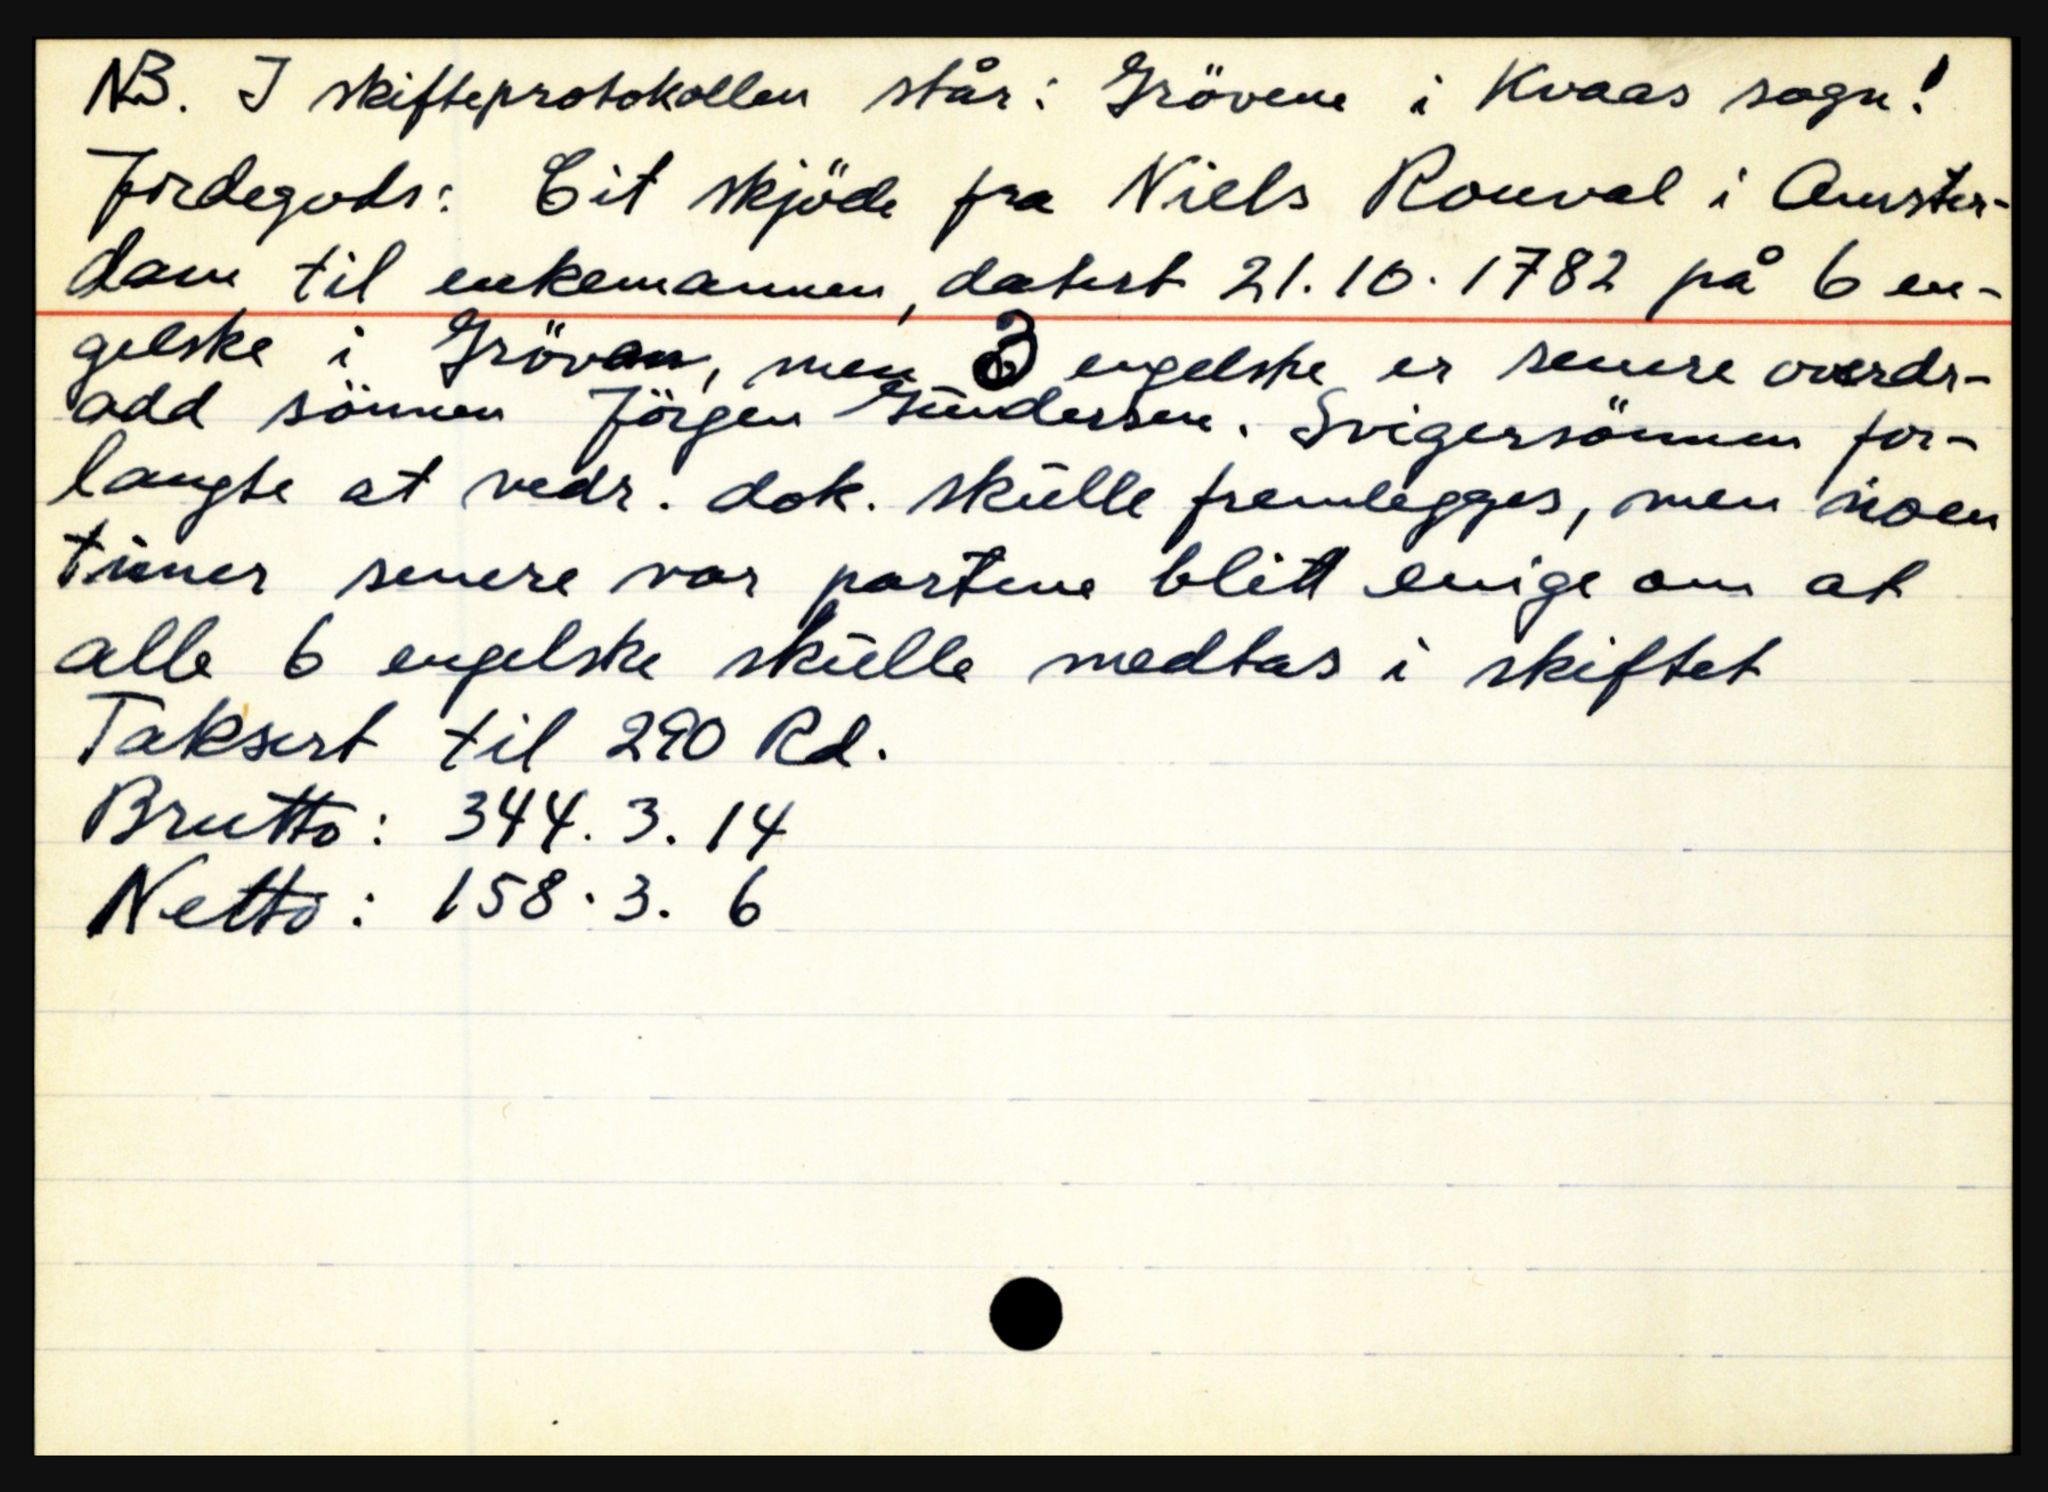 NB. I skifteprotokollen står: Grövene i Kvaas sogn!
Jordegods: Eit skjöde fra Niels Rouval i Amster-
dam til enkemannen, datert 21.10.1782 på 6 en-
gelske i Grövan, men 3 engelske er senere overdr-
add sönnen Jörgen Gundersen. Svigersönnen for-
langte at vedr. dok. skulle fremlegges, men noen
timer senere var partene blitt enige om at
alle 6 engelske skulle medtas i skiftet
Taksert til 290 Rd.
Brutto: 344. 3. 14
Netto: 158. 3. 6